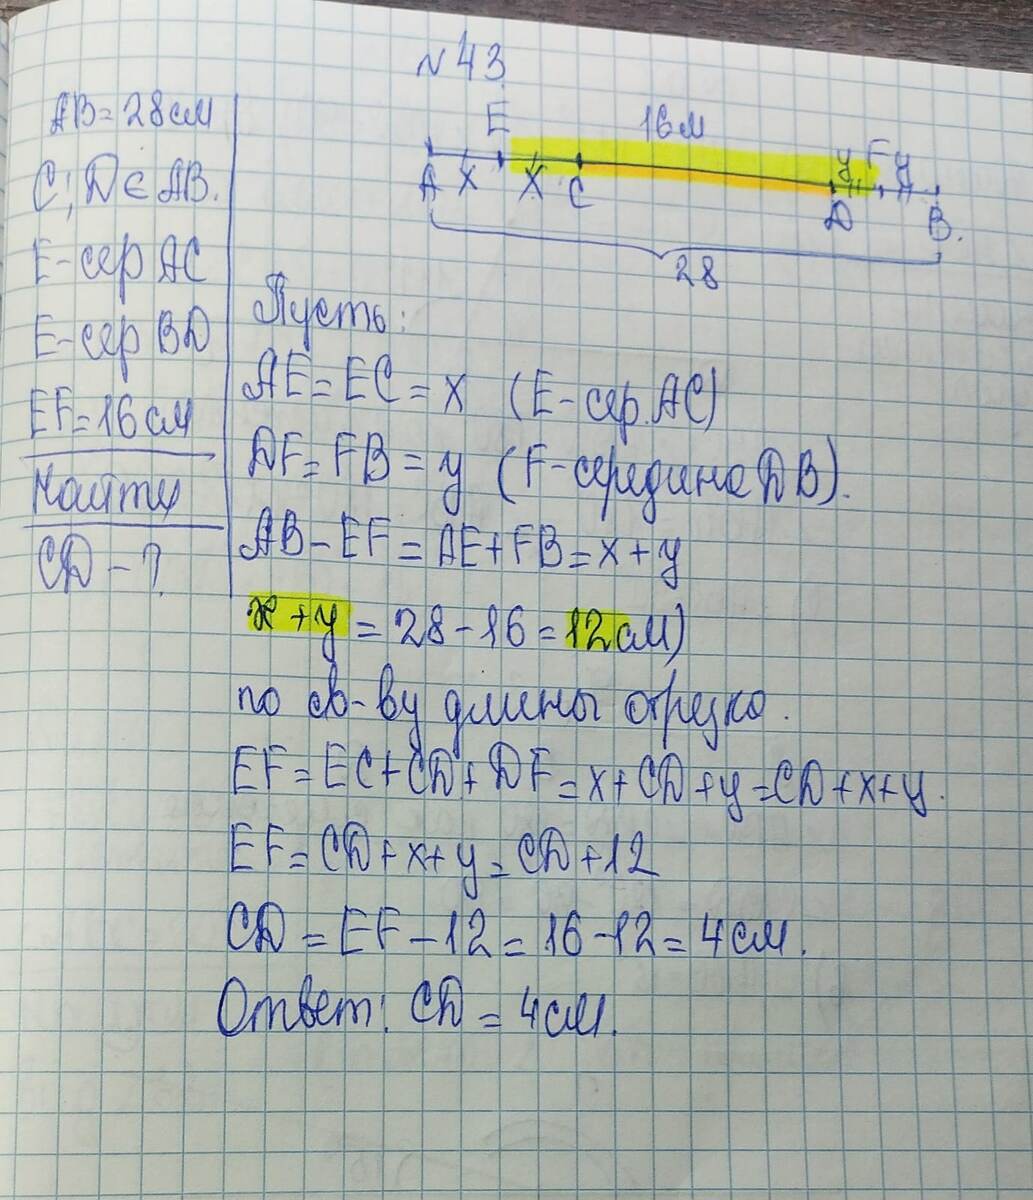 № 43
AB = 28 см
C; D ∈ AB.
E - сер AC
E - сер BD
EF = 16 см
Найти
CD - ?
E 16 м
A x x C y F y
D B.
28
Пусть:
AE = EC = x (E - сер. AC)
DF = FB = y (F - середина DB).
AB - EF = AE + FB = x + y
x + y = 28 - 16 = 12 см)
по св-ву длины отрезка.
EF = EC + CD + DF = x + CD + y = CD + x + y.
EF = CD + x + y = CD + 12
CD = EF - 12 = 16 - 12 = 4 см.
Ответ: CD = 4 см.